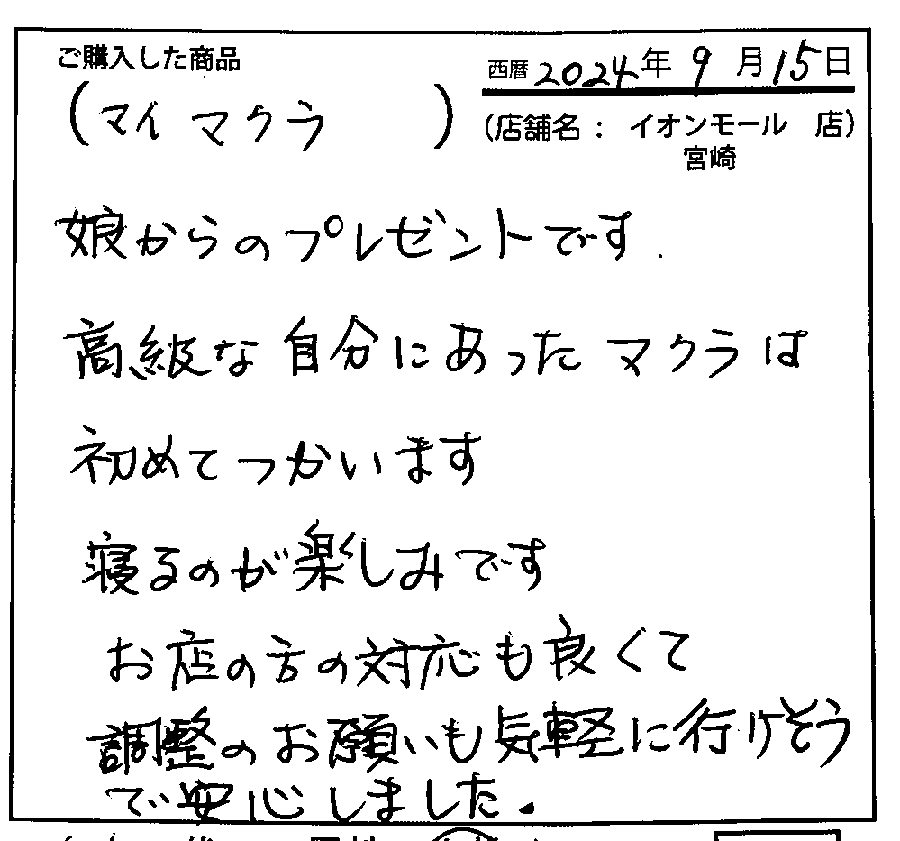 ご購入した商品
西暦 2024年 9月15日
(マイ マクラ)
(店舗名: イオンモール 店)
宮崎
娘からのプレゼントです.
高級な自分にあったマクラは
初めてつかいます
寝るのが楽しみです
お店の方の対応も良くて
調整のお願いも気軽に行けそう
で安心しました.